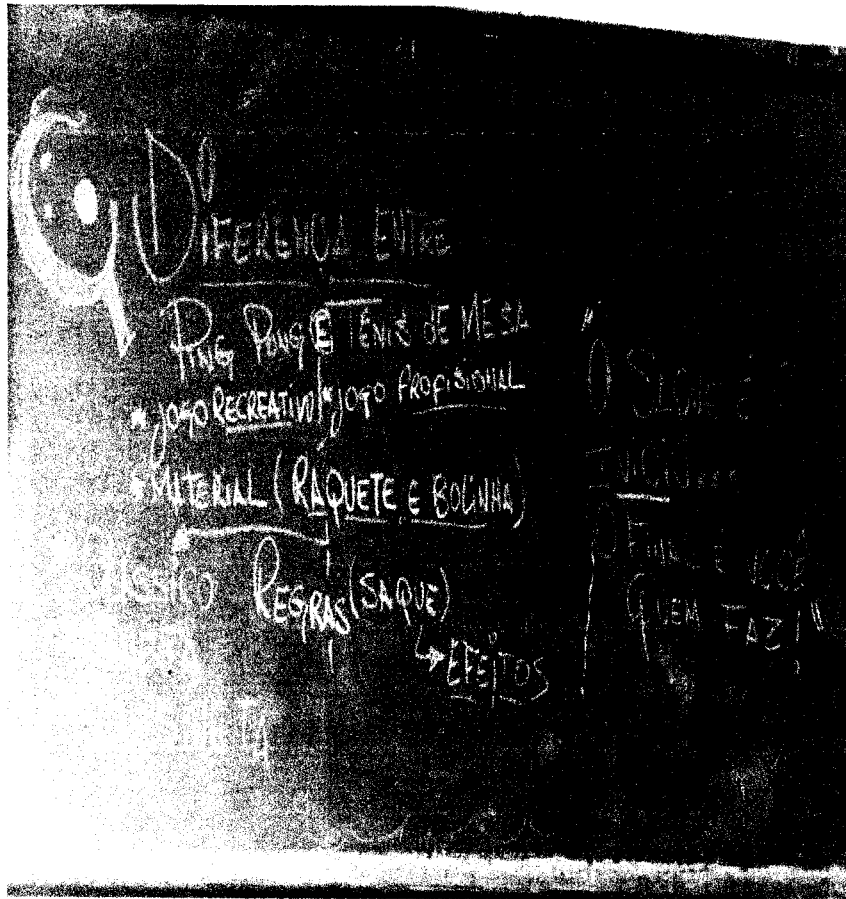 DIFERENÇA ENTRE
PING PONG E TÊNIS DE MESA
* JOGO RECREATIVO / * JOGO PROFISIONAL
* MATERIAL (RAQUETE E BOLINHA)
CLÁSSICO REGRAS (SAQUE)
↳ EFEITOS
"O
INICIO...
O FINAL E VOCÊ
QUEM FAZ!"